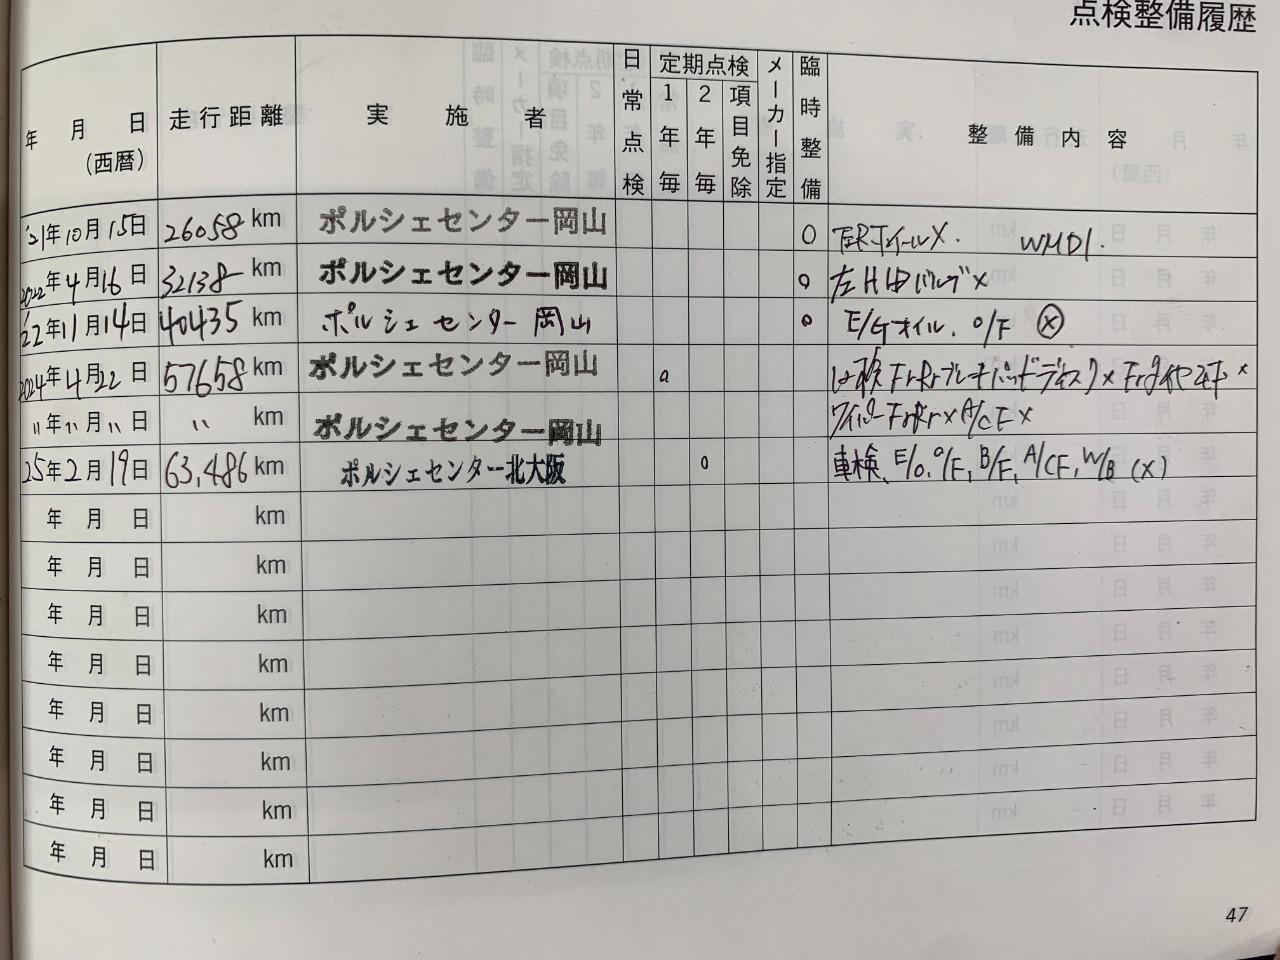 点検整備履歴
年 月 日 (西暦) 走行距離 実施者 日常点検 定期点検 1年毎 2年毎 項目免除 メーカー指定 臨時整備 整備内容
'21年10月15日 26058 km ポルシェセンター岡山 ○ ホイール×. WHD1.
2022年4月16日 32138 km ポルシェセンター岡山 ○ 左H/Dバルブ×
'22年11月14日 40435 km ポルシェセンター岡山 ○ E/Gオイル. O/F ⓧ
2024年4月22日 57658 km ポルシェセンター岡山 ○ Fr Rrブレーキパッドディスク× Frタイヤ ×
〃年〃月〃日 〃 ポルシェセンター岡山 ワイパーFr Rr× A/CF×
25年2月19日 63,486 km ポルシェセンター北大阪 ○ 車検、E/O, O/F, B/F, A/CF, W/B (×)
年 月 日 km
年 月 日 km
年 月 日 km
年 月 日 km
年 月 日 km
年 月 日 km
年 月 日 km
年 月 日 km
47